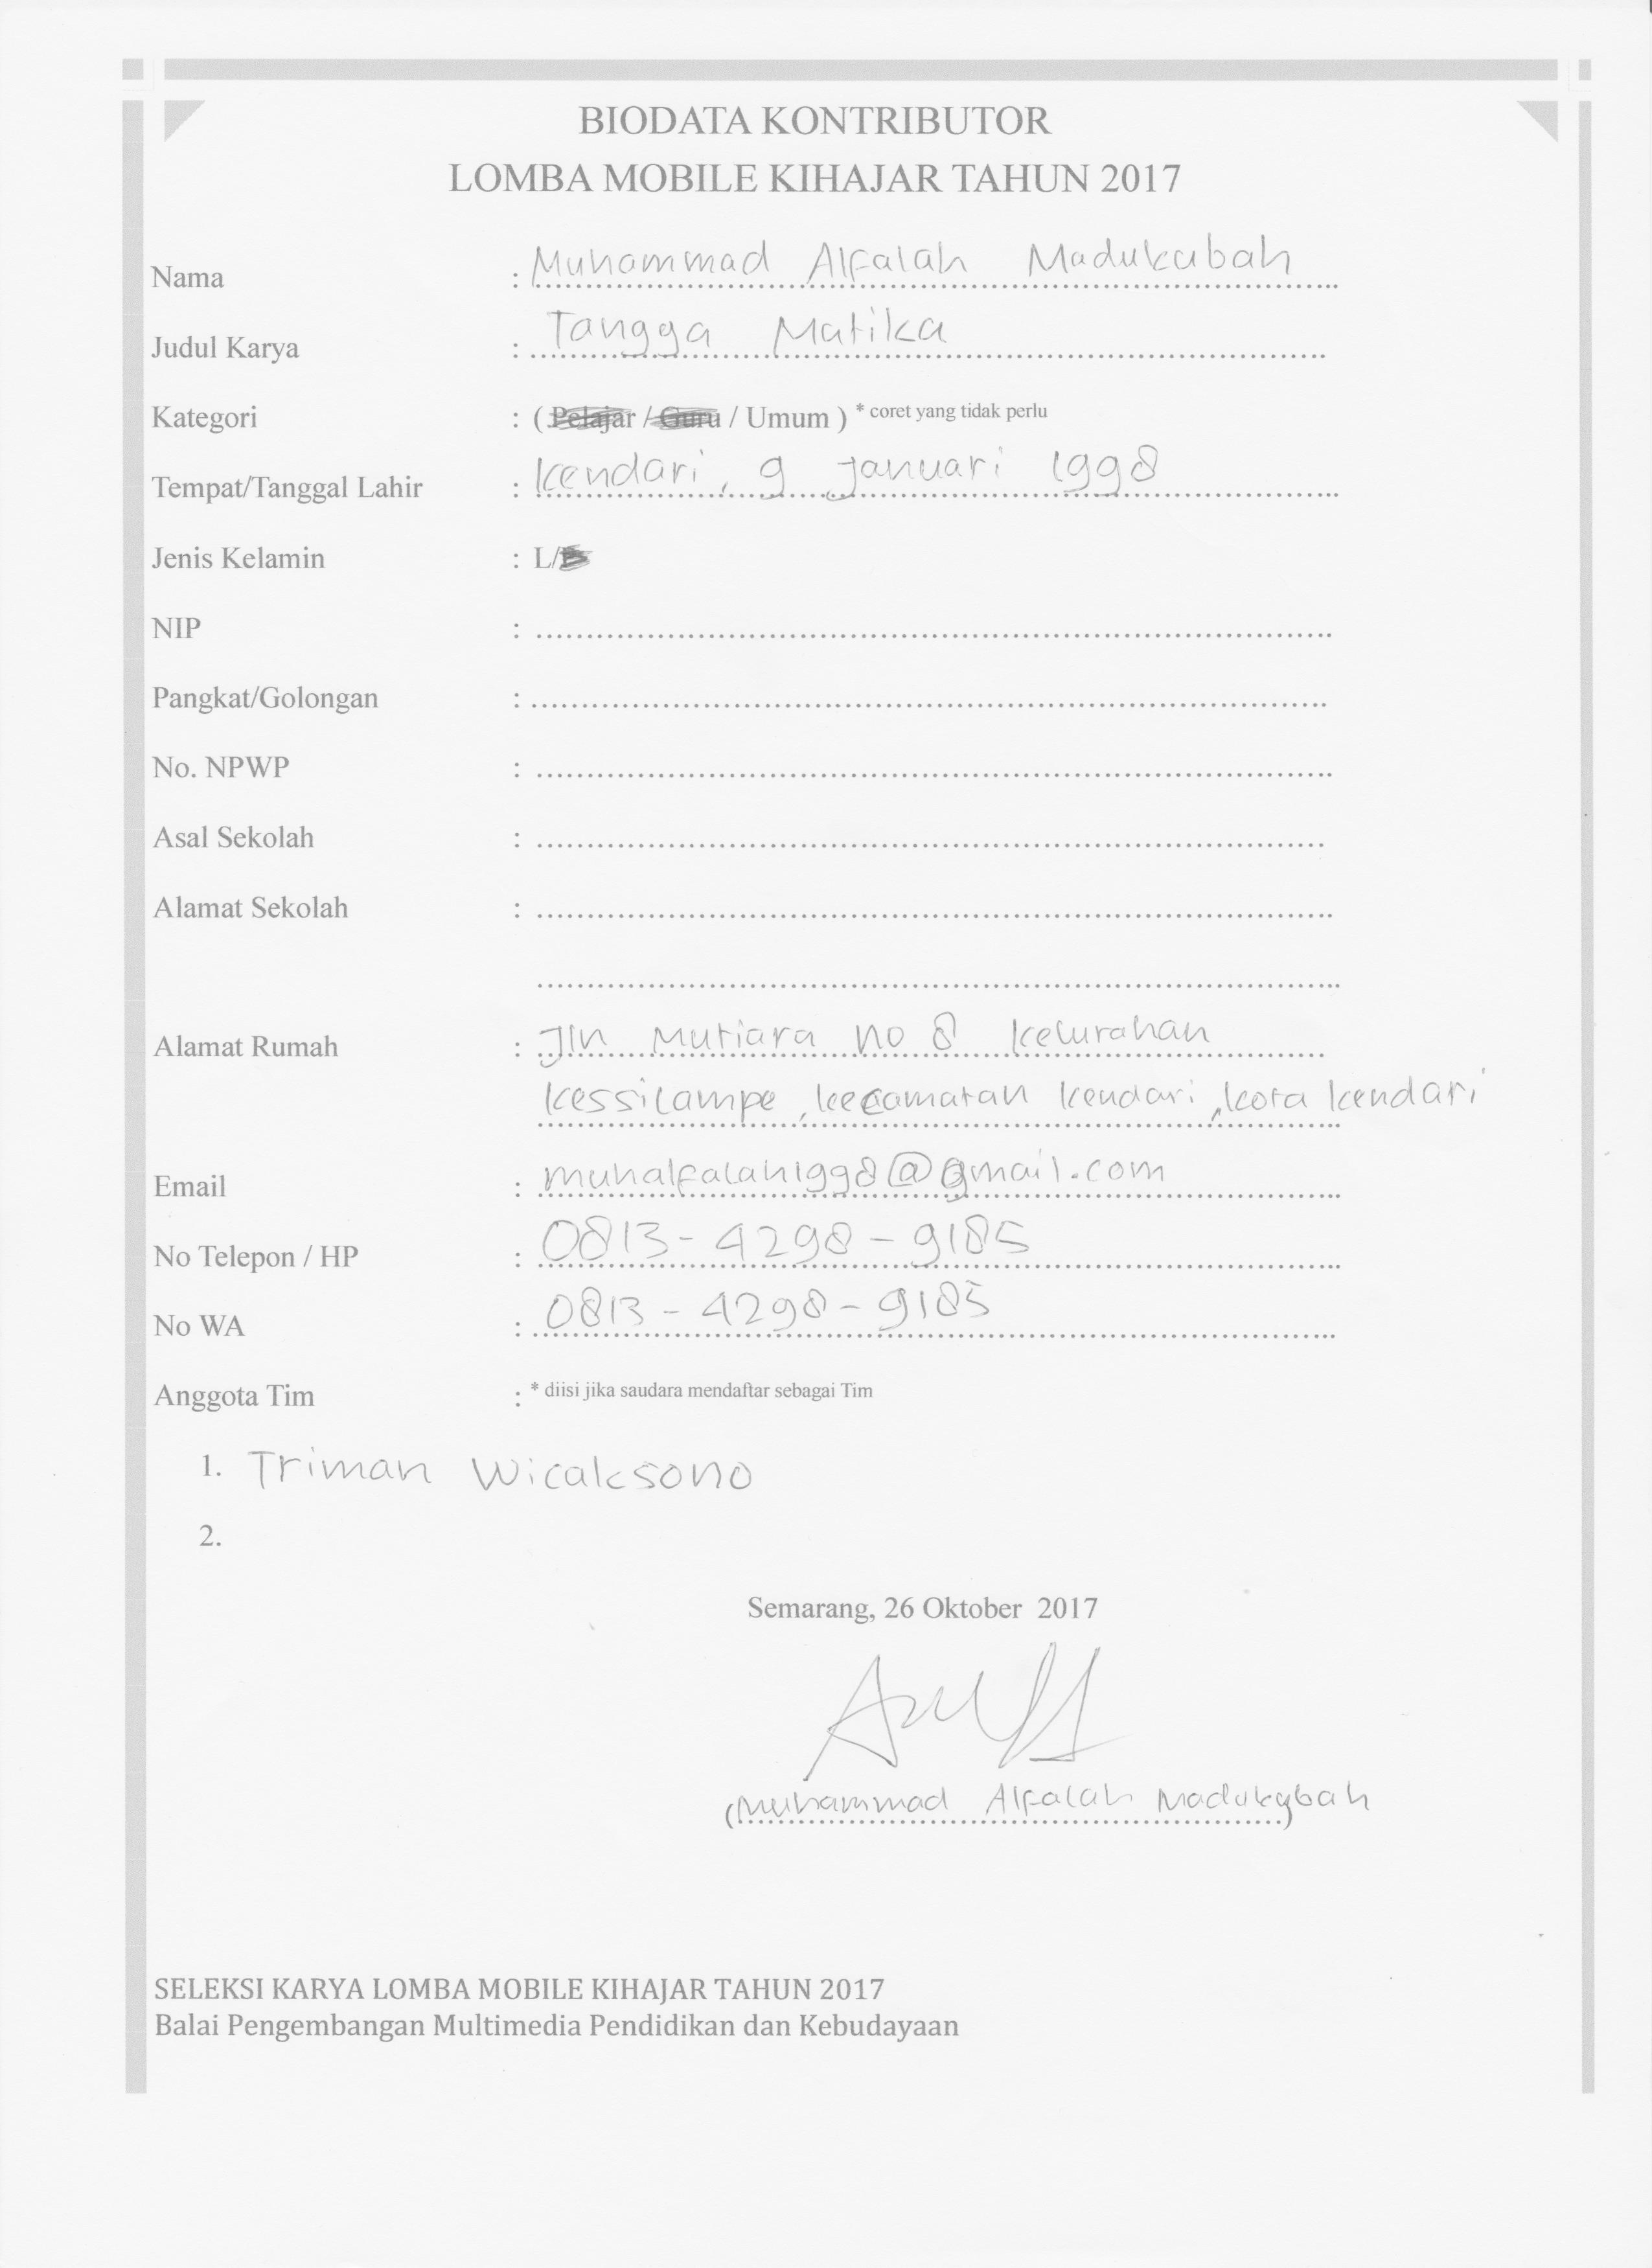 BIODATA KONTRIBUTOR
LOMBA MOBILE KIHAJAR TAHUN 2017
Nama : Muhammad Alfalah Madukubah
Judul Karya : Tangga Matika
Kategori : ( Pelajar / Guru / Umum ) * coret yang tidak perlu
Tempat/Tanggal Lahir : Kendari, 9 Januari 1998
Jenis Kelamin : L/P
NIP : ........................
Pangkat/Golongan : ........................
No. NPWP : ........................
Asal Sekolah : ........................
Alamat Sekolah : ........................
........................
Alamat Rumah : Jln Mutiara no 8 kelurahan
kessilampe, kecamatan kendari, kota kendari
Email : muhalfalah1998@gmail.com
No Telepon / HP : 0813-4298-9185
No WA : 0813-4298-9185
Anggota Tim : * diisi jika saudara mendaftar sebagai Tim
1. Triman Wicaksono
2.
Semarang, 26 Oktober 2017
(Muhammad Alfalah Madukubah)
SELEKSI KARYA LOMBA MOBILE KIHAJAR TAHUN 2017
Balai Pengembangan Multimedia Pendidikan dan Kebudayaan